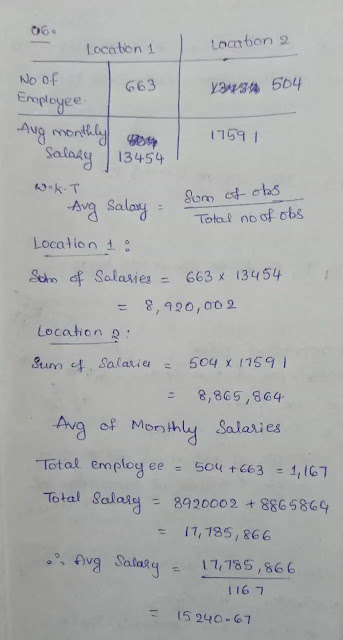 06.
Location 1 Location 2
No of Employee 663 504
Avg monthly Salary 13454 17591
W.K.T
Avg Salary = Sum of obs / Total no of obs
Location 1 :
Sum of Salaries = 663 x 13454
= 8,920,002
Location 2 :
Sum of Salaries = 504 x 17591
= 8,865,864
Avg of Monthly Salaries
Total employee = 504 + 663 = 1,167
Total Salary = 8920002 + 8865864
= 17,785,866
∴ Avg Salary = 17,785,866 / 1167
= 15240.67